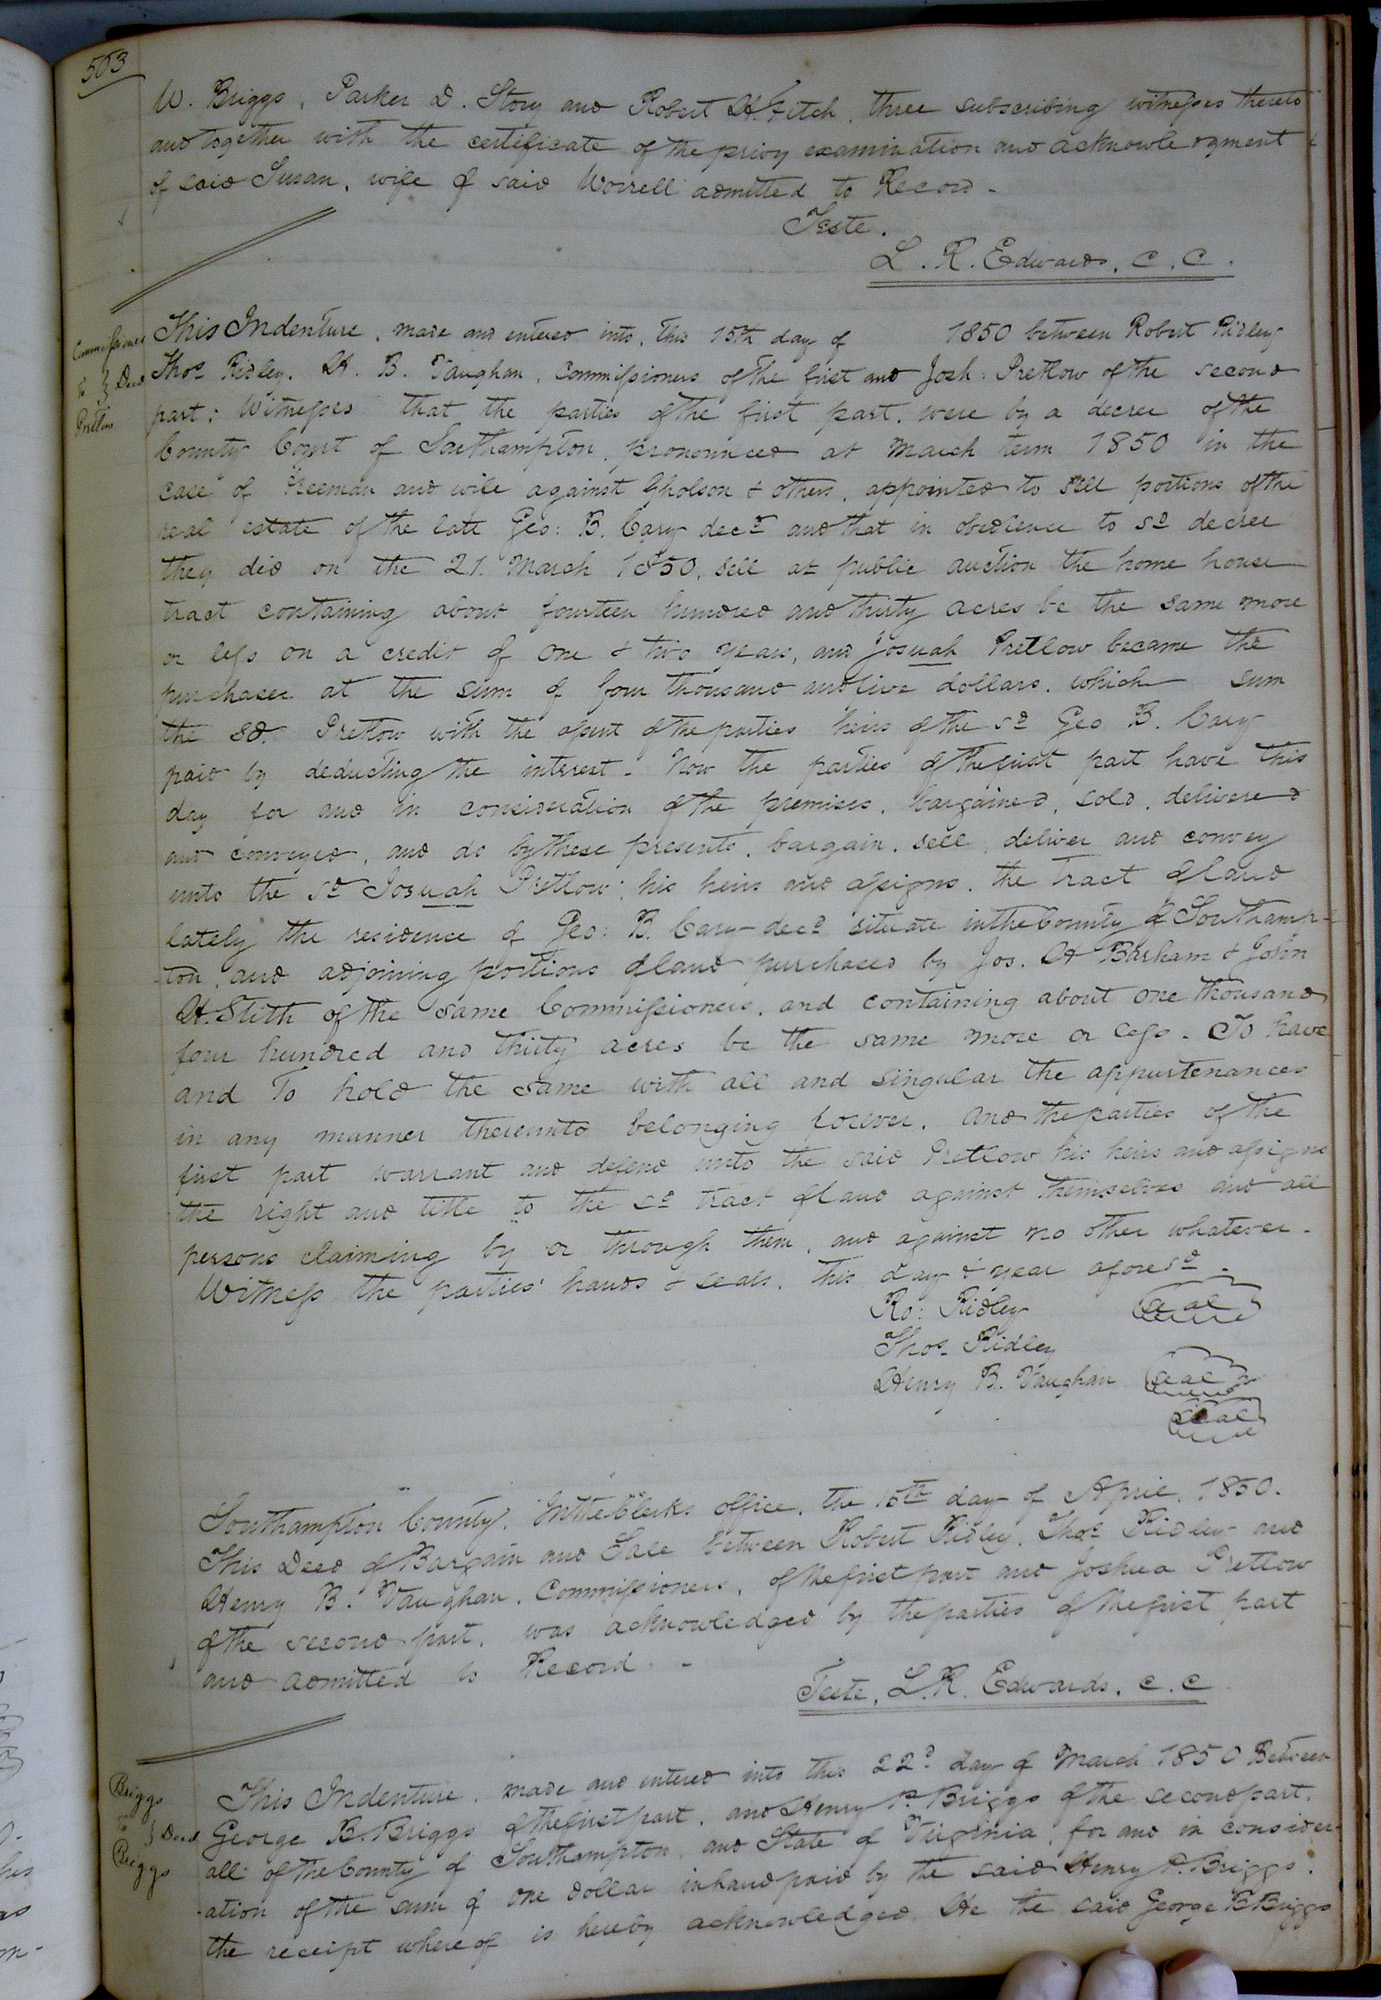 503
W. Briggs, Parker D. Story and Robert H. Fitch, three subscribing witnesses thereto
and together with the certificate of the privy examination and acknowledgment
of said Susan, wife of said Worrell admitted to Record -
Teste.
L. R. Edwards, C. C.
Commissioners
to } Deed
Pretlow
This Indenture, made and entered into, this 15th day of 1850 between Robert Ridley
Thos Ridley, H. B. Vaughan, Commissioners of the first and Josh: Pretlow of the second
part: Witnesses that the parties of the first part, were by a decree of the
County Court of Southampton, pronounced at March term 1850 in the
case of Freeman and wife against Gholson & others, appointed to sell portions of the
real estate of the late Geo: B. Cary decd and that in obedience to sd decree
they did on the 21. March 1850, sell at public auction the home house
tract containing about fourteen hundred and thirty acres be the same more
or less on a credit of one & two years, and Josuah Pretlow became the
purchaser at the sum of four thousand and five dollars, which sum
the sd. Pretlow with the assent of the parties heirs of the sd Geo B. Cary
paid by deducting the interest - Now the parties of the first part have this
day for and in consideration of the premises, bargained, sold, delivered
and conveyed, and do by these presents, bargain, sell, deliver and convey
unto the sd Josuah Pretlow; his heirs and assigns, the Tract of land
lately the residence of Geo: B. Cary decd situate in the County of Southamp-
-ton, and adjoining portions of land purchased by Jos. H Barham & John
H. Stith of the same Commissioners, and containing about one thousand
four hundred and thirty acres be the same more or less - To have
and To hold the same with all and singular the appurtenances
in any manner thereunto belonging forever. And the parties of the
first part warrant and defend unto the said Pretlow his heirs and assigns
the right and title to the sd tract of land against themselves and all
persons claiming by or through them, and against no other whatever -
Witness the parties' hands & seals, this day & year aforesd -
Ro: Ridley seal
Thos Ridley
Henry B. Vaughan seal
seal
Southampton County. In the Clerks office, the 15th day of April, 1850.
This Deed of Bargain and Sale between Robert Ridley, Thos Ridley and
Henry B. Vaughan, Commissioners, of the first part and Joshua Pretlow
of the second part, was acknowledged by the parties of the first part
and admitted to Record -
Teste, L. R. Edwards, C. C
Briggs
to } Deed
Briggs
This Indenture, made and entered into this 22d day of March 1850 Between
George B. Briggs of the first part, and Henry P. Briggs of the second part,
all of the County of Southampton, and State of Virginia, for and in consider-
-ation of the sum of one dollar in hand paid by the said Henry P. Briggs,
the receipt whereof is hereby acknowledged, He the said George B Briggs